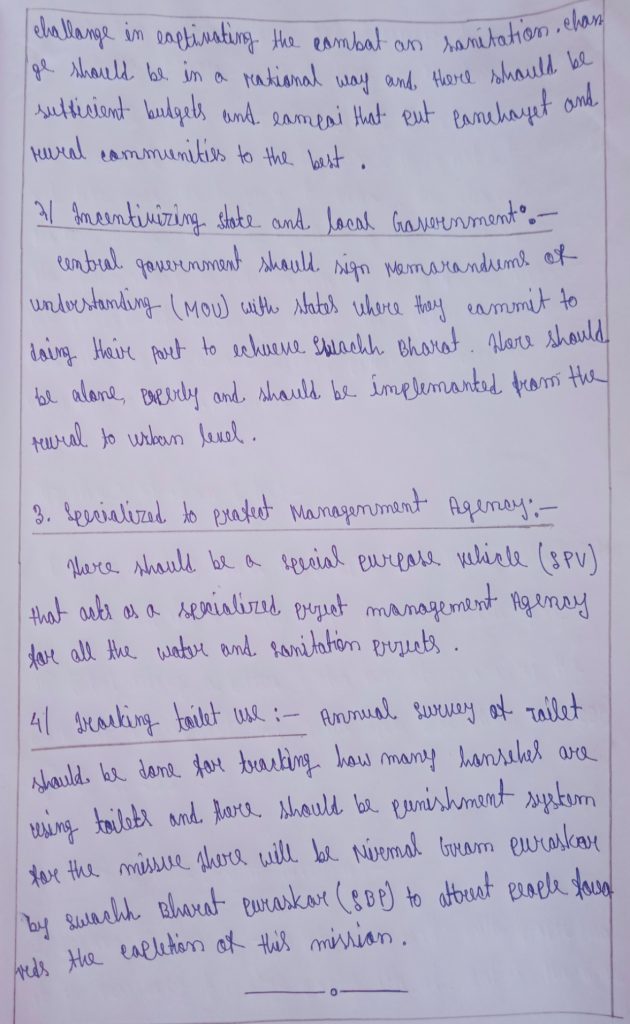 challange in eaptivating the combat on sanitation. chan
ge should be in a rational way and there should be
sufficient budgets and campai that put panchayet and
rural communities to the best.
2/ Incentivizing state and local Government:-
central government should sign Memorandums of
understanding (MOU) with states where they commit to
doing their part to echueve Swachh Bharat. There should
be alone, properly and should be implemanted from the
rural to urban level.
3. Specialized to profect Management Agency:-
There should be a special purpose vehicle (SPV)
that acts as a specialized project management Agency
for all the water and sanitation projects.
4/ Tracking toilet use :- Annual survey of Toilet
should be done for tracking how many are
using toilets and there should be punishment system
for the missue there will be Nirmal Gram puraskar
by swachh Bharat puraskar (SBP) to attrat people towa
reds the of this mission.